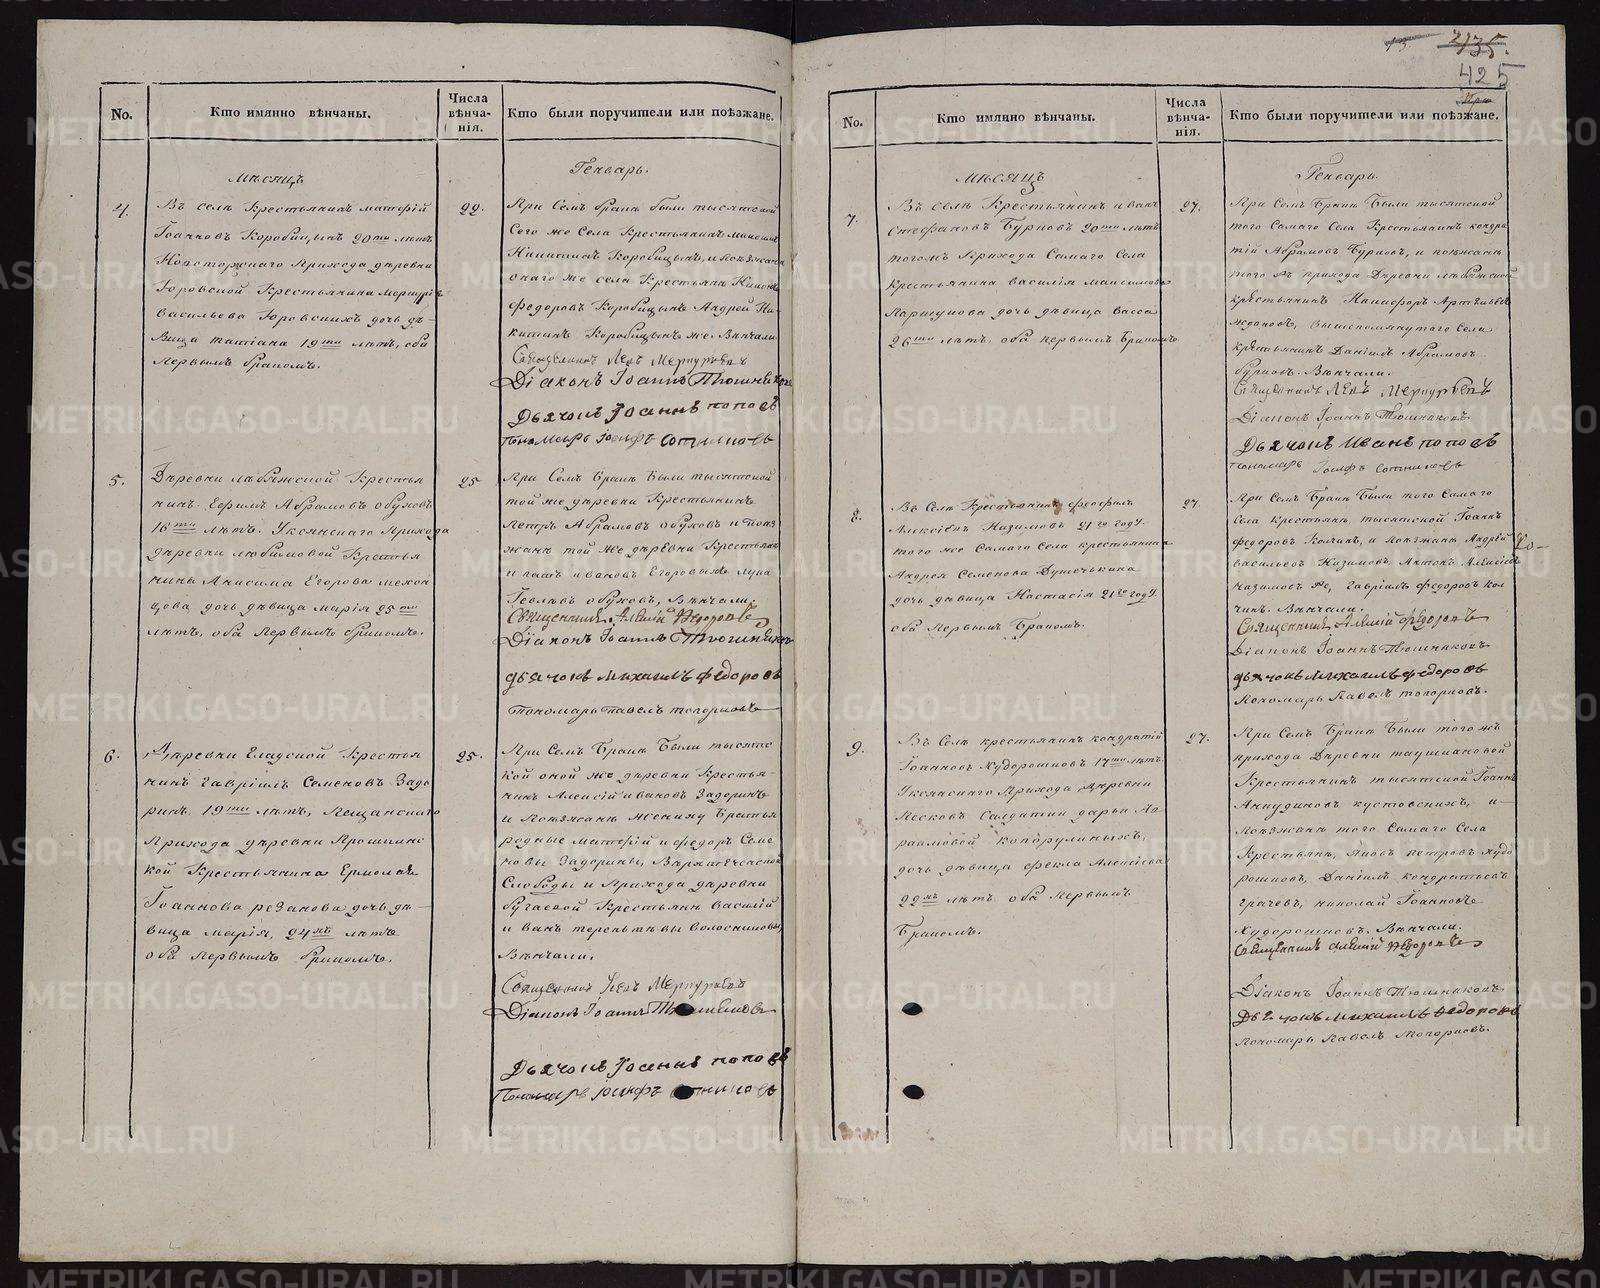 No.
Кто имянно вѣнчаны.
Числа
вѣнча-
нія.
Кто были поручители или поѣзжане.
Мѣсяцъ
Генварь.
4.
Въ селѣ Крестьянинъ Матфій
Іоанновъ Коробицынъ 20ти лѣтъ
прихода деревни
Юровской Крестьянина Меркурія
Васильева Юровскихъ дочь дѣ-
вица Татіана 19ти лѣтъ, оба
первымъ бракомъ.
22.
При семъ бракѣ были тысятской
сего же села Крестьянинъ
Коробицынъ, и поѣзжана
онаго же села Крестьяна
Федоровъ Коробицынъ Андрей Ни-
китинъ Коробицынъ же. Вѣнчали
Священникъ Левъ Меркурьевъ
Діаконъ Іоаннъ Тюшняковъ
Дьячокъ Іоаннъ Поповъ
Пономарь Іосифъ Сотниковъ
5.
Деревни Лебяжской Крестья
нинъ Ефимъ Абрамовъ Обуховъ
16ти лѣтъ. Уксянскаго прихода
деревни Любимовой Крестья
нина Анисима Егорова
дочь дѣвица Марія 25ти
лѣтъ, оба первымъ бракомъ.
25
При семъ бракѣ были тысятской
той же деревни Крестьянинъ
Петръ Абрамовъ Обуховъ и поѣз
жана той же деревни Крестьяна
Ивановъ Егоровыхъ Лука
Обуховъ, Вѣнчали.
Священникъ Алексій Федоровъ
Діаконъ Іоаннъ Тюшняковъ
Дьячокъ Михаилъ Федоровъ
Пономарь Павелъ Топорковъ
6.
Деревни Крестья
нинъ Гавріилъ Семеновъ Задо
ринъ, 19ти лѣтъ, Пещанскаго
прихода деревни
кой Крестьянина Ермолая
Іоаннова Резанова дочь дѣ-
вица Марія, 24хъ лѣтъ
оба первымъ бракомъ.
25.
При семъ бракѣ были тысятс
кой оной же деревни Крестья-
нинъ Алексій Ивановъ Задоринъ
и поѣзжана жениху братья
родные Матфій и Федоръ Семе
новы Задорины,
Слободы и прихода деревни
Бугаевой Крестьяна Василій
и Иванъ Терентьевы Волосниковы,
Вѣнчали.
Священникъ Левъ Меркурьевъ
Діаконъ Іоаннъ Тюшняковъ
Дьячокъ Іоаннъ Поповъ
Пономарь Іосифъ Сотниковъ
425
No.
Кто имянно вѣнчаны.
Числа
вѣнча-
нія.
Кто были поручители или поѣзжане.
Мѣсяцъ
Генварь.
7.
Въ селѣ Крестьянинъ Иванъ
Стефановъ Бурковъ 20ти лѣтъ
тогожъ прихода самаго села
Крестьянина Василія Максимова
Паршукова дочь дѣвица Васса
26ти лѣтъ, оба первымъ бракомъ
27.
При семъ бракѣ были тысятской
того самаго села Крестьянинъ Кондра
тій Абрамовъ Бурковъ, и поѣзжана
того жъ прихода деревни Лебяжской
крестьянинъ Никифоръ Артемьевъ
Ждановъ, вышепомянутаго села
крестьянинъ Даніилъ Абрамовъ
Бурковъ. Вѣнчали.
Священникъ Левъ Меркурьевъ
Діаконъ Іоаннъ Тюшняковъ
Дьячокъ Иванъ Поповъ
Пономарь Іосифъ Сотниковъ
8.
Въ селѣ Крестьянинъ Феофилъ
Алексіевъ Назимовъ 21го году
того же самаго села крестьянина
Андрея Семенова Душечькина
дочь дѣвица Настасія 21го году.
оба первымъ бракомъ.
27.
При семъ бракѣ были того самаго
села крестьяна тысятской Іоаннъ
Федоровъ Колчинъ, и поѣзжана Андрей
Васильевъ Назимовъ Антонъ Алексіевъ
Назимовъ же, Гавріилъ Федоровъ Кол
чинъ. Вѣнчали.
Священникъ Алексій Федоровъ
Діаконъ Іоаннъ Тюшняковъ
Дьячокъ Михаилъ Федоровъ
Пономарь Павелъ Топорковъ.
9.
Въ селѣ крестьянинъ Кондратій
Іоанновъ Худорошковъ 17ти лѣтъ
Уксянскаго прихода деревни
Песковъ Салдатки Дарьи Ав
раамовой
дочь дѣвица Фекла Алексіева
22хъ лѣтъ оба первымъ
бракомъ.
27.
При семъ бракѣ были того жъ
прихода деревни Таушкановой
Крестьянинъ тысятской Іоаннъ
Анкудиновъ Кустовскихъ, и
поѣзжана того самаго села
Крестьяна, Яковъ Петровъ Худо
рошковъ, Даніилъ Кондратьевъ
Грачевъ, Николай Іоанновъ
Худорошковъ. Вѣнчали.
Священникъ Алексій Федоровъ
Діаконъ Іоаннъ Тюшняковъ
Дьячокъ Михаилъ Федоровъ
Пономарь Павелъ Топорковъ.
METRIKI.GASO-URAL.RU